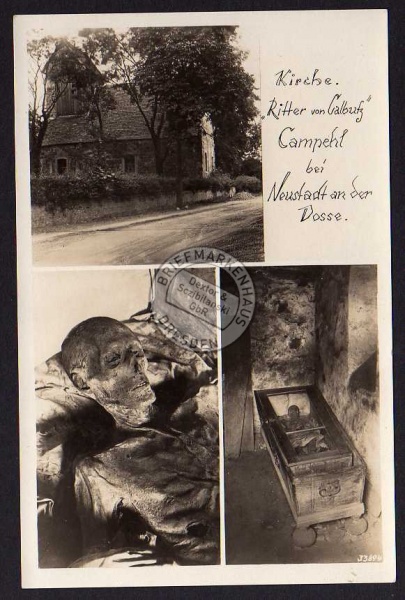 Kirche.
"Ritter von Calbutz"
Campehl
bei
Neustadt an der
Dosse.
BRIEFMARKENHAUS
Dextor &
Sczibilanski
GbR
DRESDEN